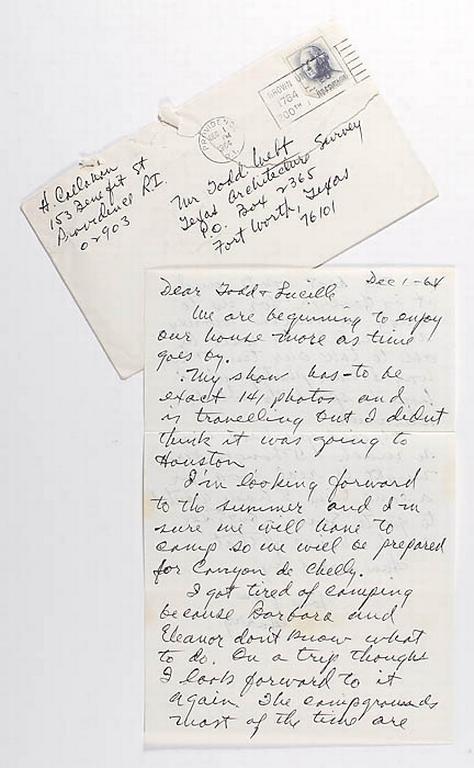 H. Callahan
153 Benefit St
Providence R.I.
02903
PROVIDENCE
DEC
PM
1964
R.I.
BROWN UN
1764
200TH
Mr Todd Webb
Texas Architecture Survey
P.O. Box 2365
Fort Worth, Texas
76101
Dec 1-64
Dear Todd + Lucille
We are beginning to enjoy
our house more as time
goes by.
My show has-to be
exact 141 photos and
is travelling but I didn't
think it was going to
Houston
I'm looking forward
to the summer and I'm
sure we will have to
camp so we will be prepared
for Canyon de Chelly.
I got tired of camping
because Barbara and
Eleanor don't know what
to do. On a trip though
I look forward to it
again. The campgrounds
most of the time are